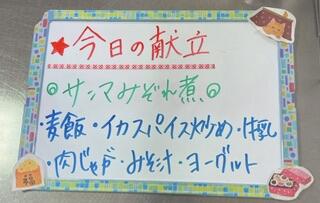 ★今日の献立
◎サンマみぞれ煮◎
・麦飯・イカスパイス炒め・牛乳
・肉じゃが・みそ汁・ヨーグルト
福